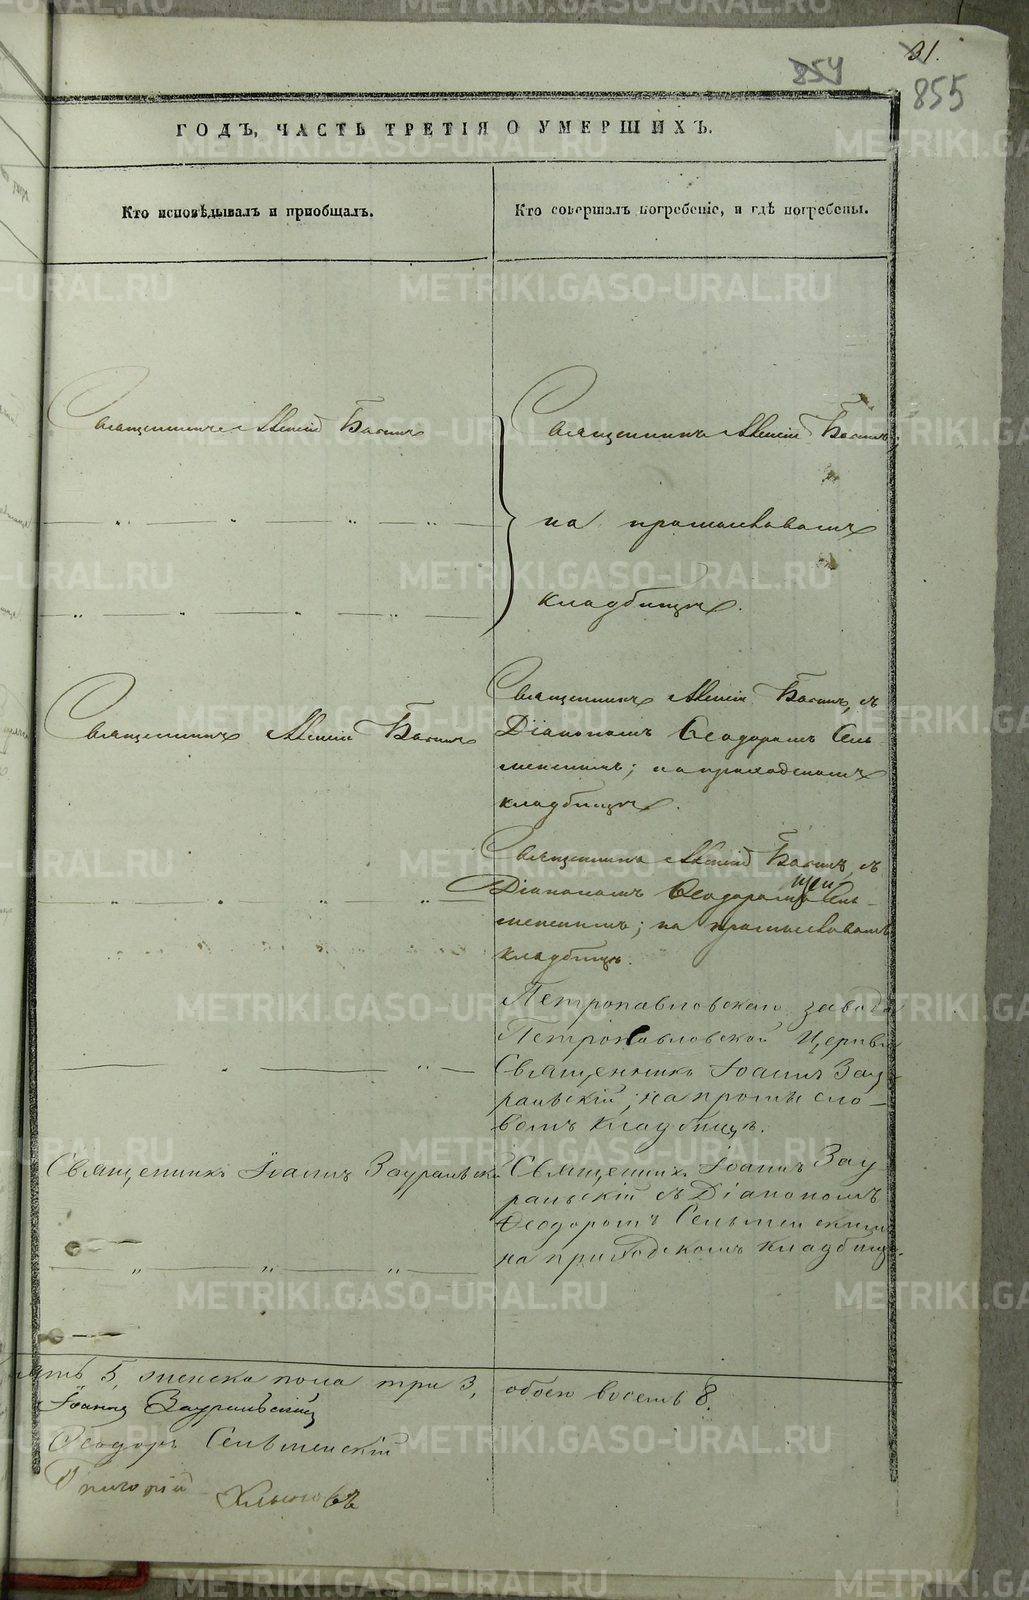 31.
854
855
ГОДЪ, ЧАСТЬ ТРЕТІЯ О УМЕРШИХЪ.
Кто исповѣдывалъ и пріобщалъ.
Кто совершалъ погребеніе, и гдѣ погребены.
Священникъ Алексій Басинъ
Священникъ Алексій Басинъ,
на промысловомъ
кладбищѣ.
Священникъ Алексій Басинъ
Священникъ Алексій Басинъ, съ
Діакономъ Ѳеодоромъ Сель-
менскимъ; на приходскомъ
кладбищѣ.
Священникъ Алексій Басинъ, съ
Діакономъ Ѳеодоромъ Сель-
менскимъ; на промысловомъ
кладбищѣ.
Петропавловскаго завода
Петропавловской Церкви
Священникъ Іоаннъ Зау-
ральскій; на промысло-
вомъ кладбищѣ.
Священникъ Іоаннъ Зауральскій
Священникъ Іоаннъ Зау
ральскій съ Діакономъ
Ѳеодоромъ Сельменскимъ
на приходскомъ кладбищѣ.
пять 5, женска пола три 3, обоего восемь 8.
Іоаннъ Зауральскій
Ѳеодоръ Сельменскій
Григорій
METRIKI.GASO-URAL.RU